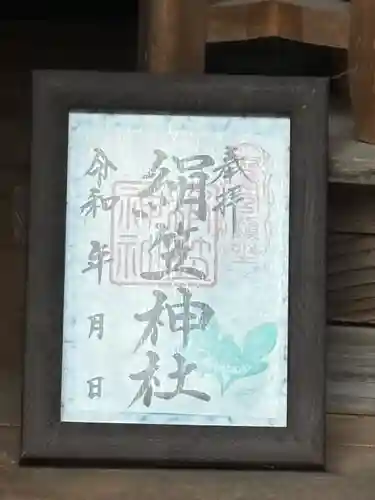 奉拝
絹笠神社
令和 年 月 日